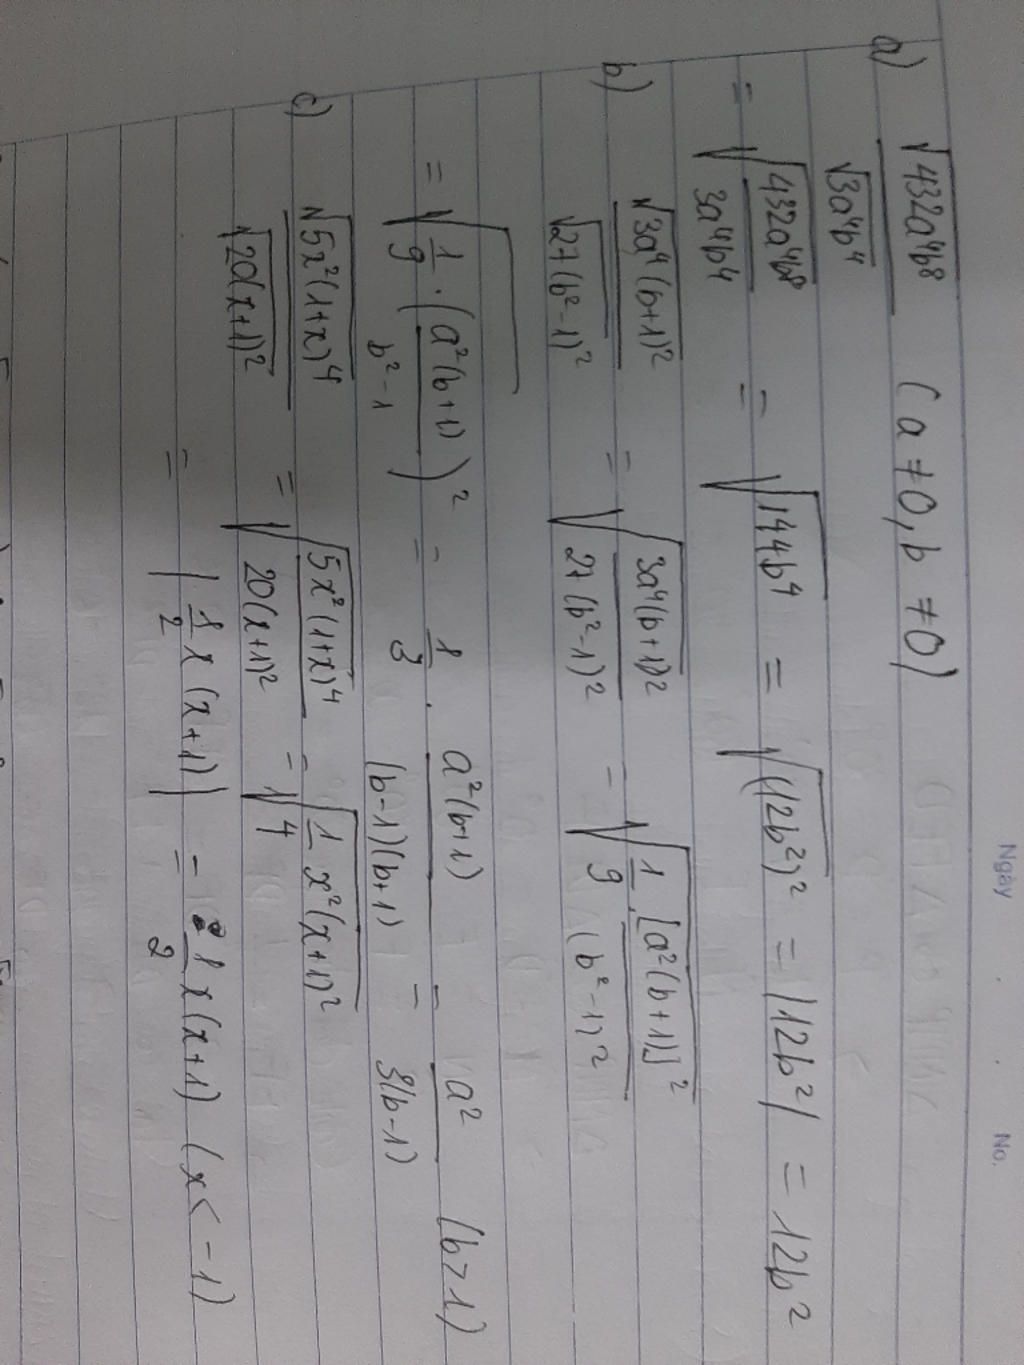 Ngày No.
a) √432a⁴b⁸ / √3a⁴b⁴ (a ≠ 0, b ≠ 0)
= √(432a⁴b⁸ / 3a⁴b⁴) = √144b⁴ = √(12b²)² = |12b²| = 12b²
b) √3a⁴(b+1)² / √27(b²-1)² = √(3a⁴(b+1)² / 27(b²-1)²) = √(1/9 · [a²(b+1)]² / (b²-1)²)
= √(1/9 · (a²(b+1) / b²-1)²) = 1/3 · a²(b+1) / (b-1)(b+1) = a² / 3(b-1) (b>1)
c) √5x²(1+x)⁴ / √20(x+1)² = √(5x²(1+x)⁴ / 20(x+1)²) = √(1/4 x²(x+1)²)
= |1/2 x(x+1)| = 1/2 x(x+1) (x< -1)